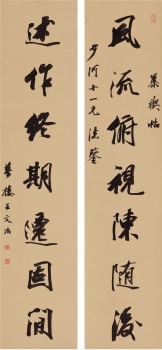 集禊帖
風流俯視陳隨後
少河十一兄清鑒
述作終期遷固間
夢樓王文治